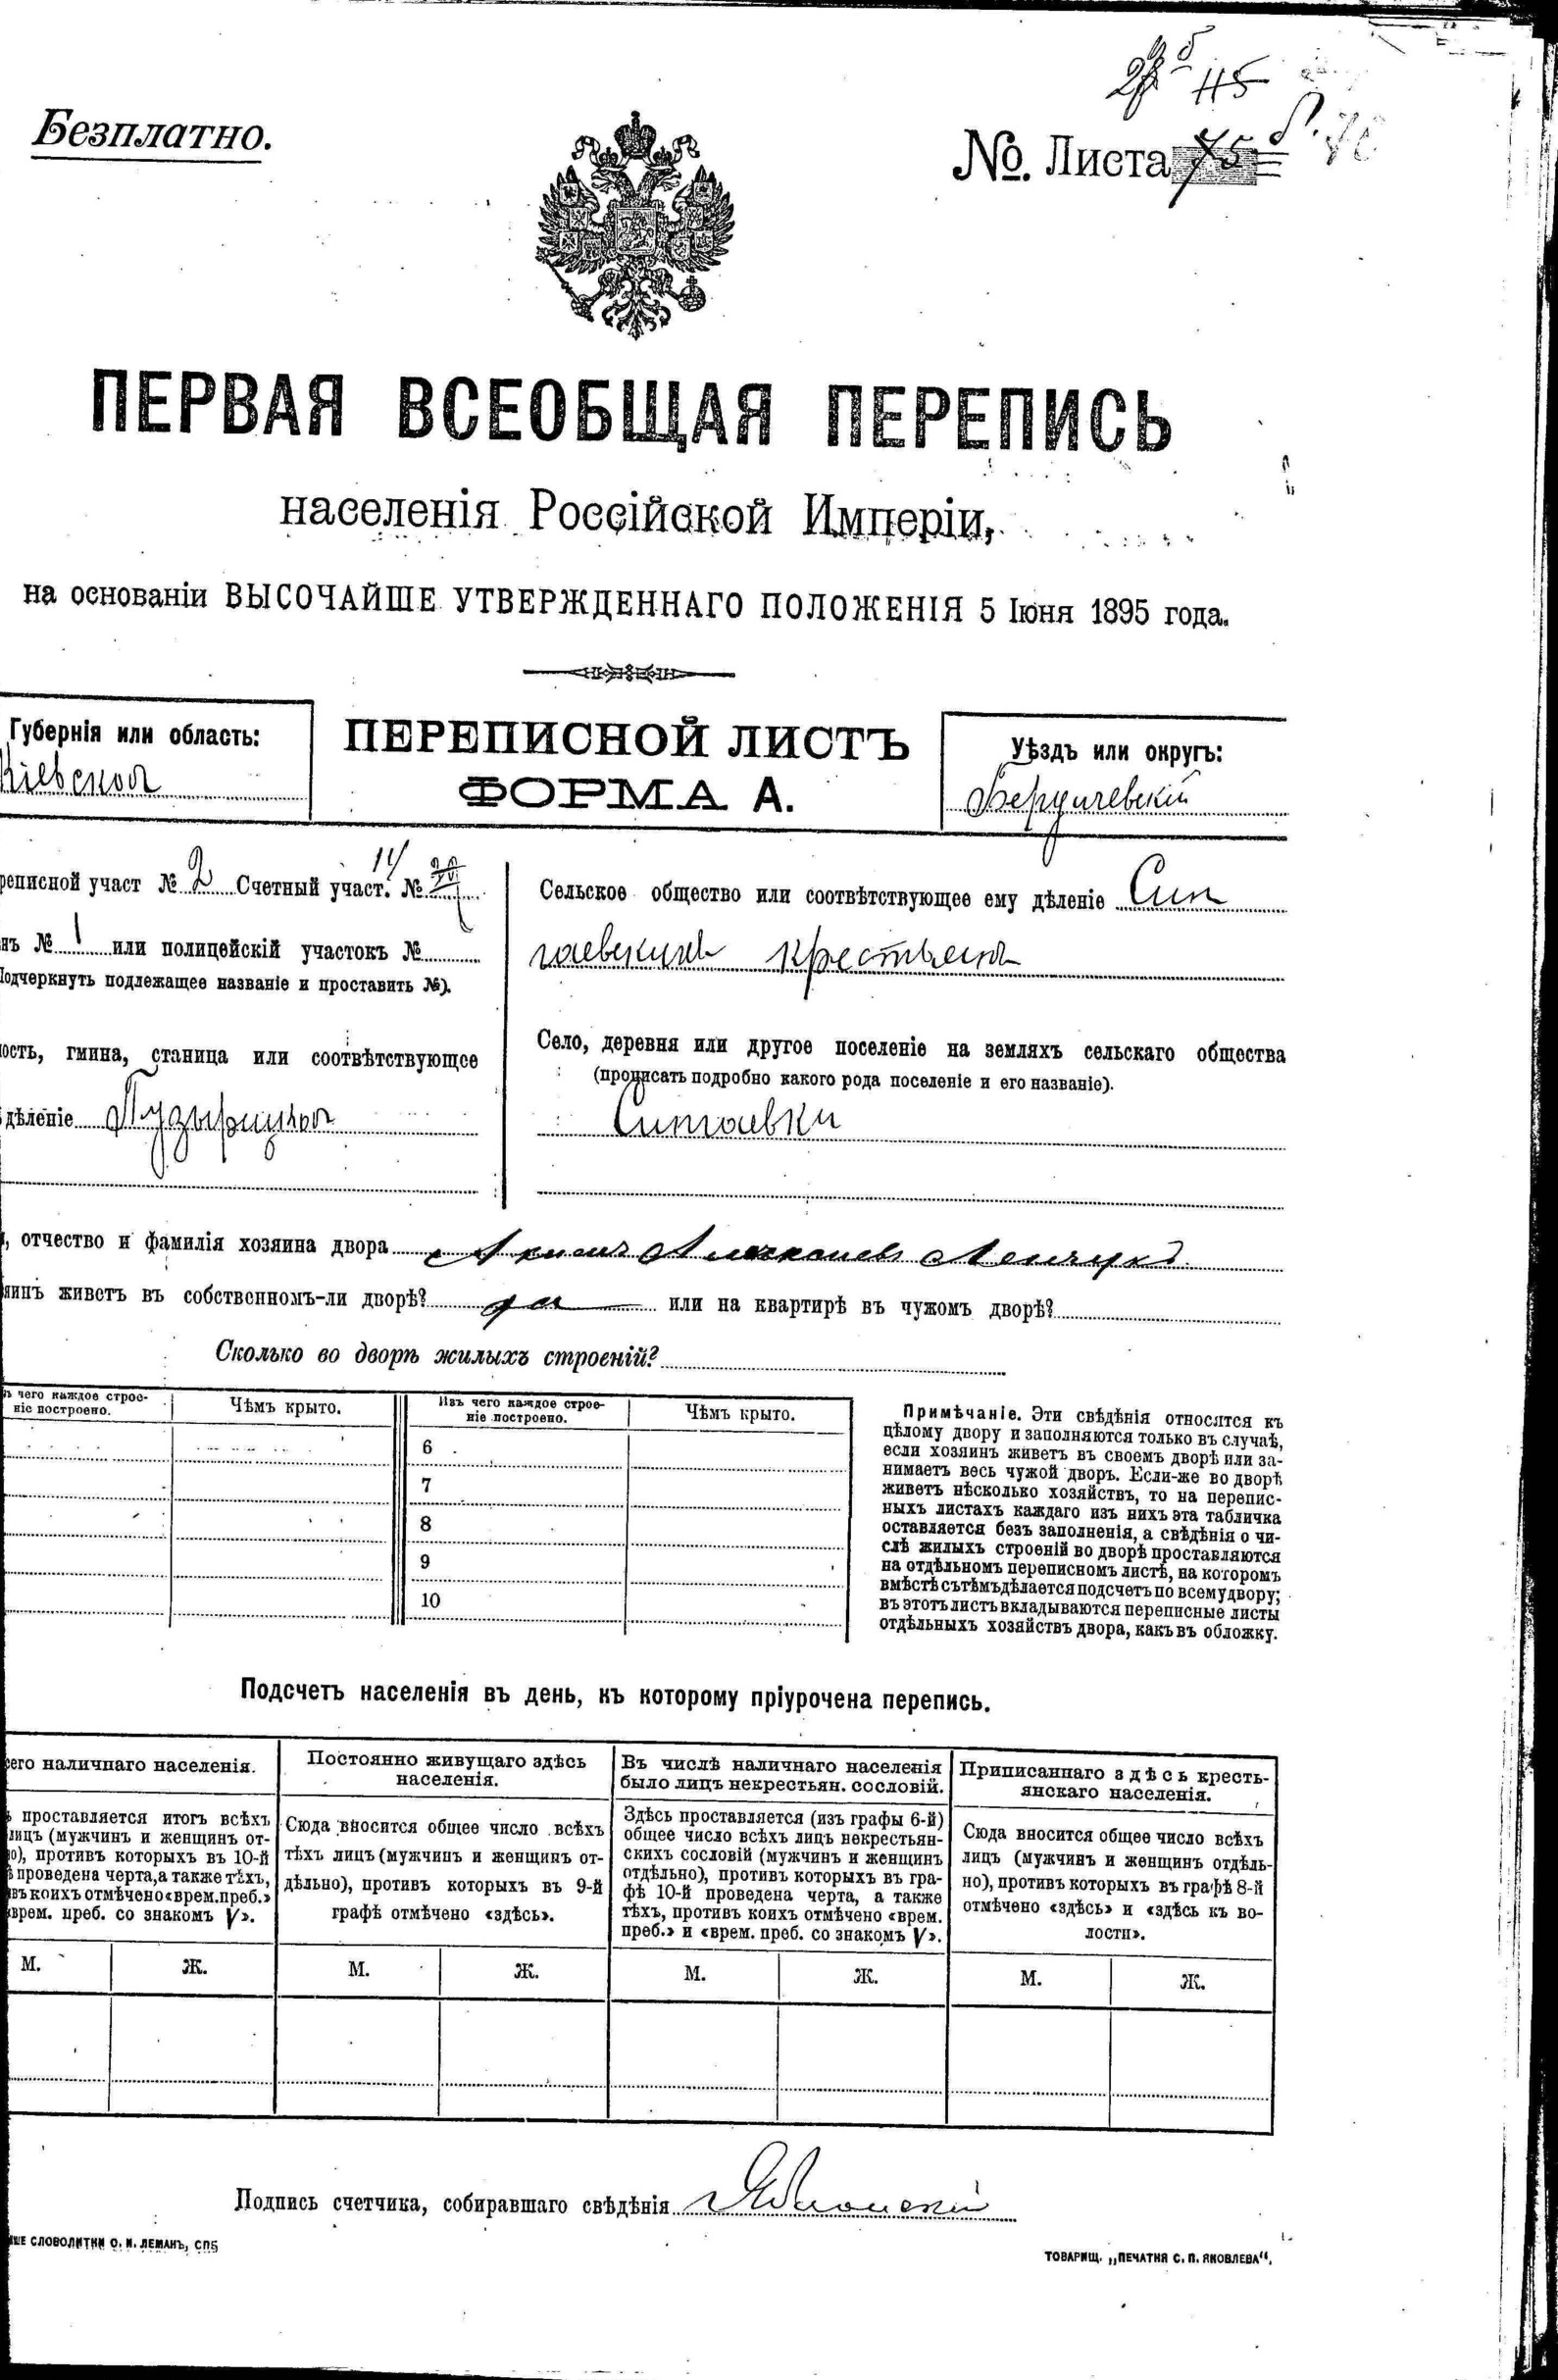 Безплатно.
115
№. Листа 75
ПЕРВАЯ ВСЕОБЩАЯ ПЕРЕПИСЬ
населенія Россійской Имперіи,
на основаніи ВЫСОЧАЙШЕ УТВЕРЖДЕННАГО ПОЛОЖЕНІЯ 5 Іюня 1895 года.
Губернія или область:
Кіевская
ПЕРЕПИСНОЙ ЛИСТЪ
ФОРМА А.
Уѣздъ или округъ:
Бердичевскій
реписной участ № 2 Счетный участ. № 14
нъ № 1 или полицейскій участокъ №
Подчеркнуть подлежащее названіе и проставить №).
ость, гмина, станица или соотвѣтствующее
дѣленіе Пузырецкая
Сельское общество или соотвѣтствующее ему дѣленіе Син
гаевскихъ крестьянъ
Село, деревня или другое поселеніе на земляхъ сельскаго общества
(прописать подробно какого рода поселеніе и его названіе).
Сингаевки
, отчество и фамилія хозяина двора
яинъ живетъ въ собственномъ-ли дворѣ? да или на квартирѣ въ чужомъ дворѣ?
Сколько во дворѣ жилыхъ строеній?
ъ чего каждое строе-
ніе построено.
Чѣмъ крыто.
Изъ чего каждое строе-
ніе построено.
Чѣмъ крыто.
6
7
8
9
10
Примѣчаніе. Эти свѣдѣнія относятся къ
цѣлому двору и заполняются только въ случаѣ,
если хозяинъ живетъ въ своемъ дворѣ или за-
нимаетъ весь чужой дворъ. Если-же во дворѣ
живетъ нѣсколько хозяйствъ, то на перепис-
ныхъ листахъ каждаго изъ нихъ эта табличка
оставляется безъ заполненія, а свѣдѣнія о чи-
слѣ жилыхъ строеній во дворѣ проставляются
на отдѣльномъ переписномъ листѣ, на которомъ
вмѣстѣ съ тѣмъ дѣлается подсчетъ по всему двору;
въ этотъ листъ вкладываются переписные листы
отдѣльныхъ хозяйствъ двора, какъ въ обложку.
Подсчетъ населенія въ день, къ которому пріурочена перепись.
сего наличнаго населенія.
ь проставляется итогъ всѣхъ
лицъ (мужчинъ и женщинъ от-
о), противъ которыхъ въ 10-й
ѣ проведена черта, а также тѣхъ,
ивъ коихъ отмѣчено «врем. преб.»
«врем. преб. со знакомъ V».
Постоянно живущаго здѣсь
населенія.
Сюда вносится общее число всѣхъ
тѣхъ лицъ (мужчинъ и женщинъ от-
дѣльно), противъ которыхъ въ 9-й
графѣ отмѣчено «здѣсь».
Въ числѣ наличнаго населенія
было лицъ некрестьян. сословій.
Здѣсь проставляется (изъ графы 6-й)
общее число всѣхъ лицъ некрестьян-
скихъ сословій (мужчинъ и женщинъ
отдѣльно), противъ которыхъ въ гра-
фѣ 10-й проведена черта, а также
тѣхъ, противъ коихъ отмѣчено «врем.
преб.» и «врем. преб. со знакомъ V».
Приписаннаго здѣсь кресть-
янскаго населенія.
Сюда вносится общее число всѣхъ
лицъ (мужчинъ и женщинъ отдѣль-
но), противъ которыхъ въ графѣ 8-й
отмѣчено «здѣсь» и «здѣсь къ во-
лости».
М. Ж. М. Ж. М. Ж. М. Ж.
Подпись счетчика, собиравшаго свѣдѣнія
ШЕ СЛОВОЛИТНИ О. И. ЛЕМАНЪ, СПБ
ТОВАРИЩ. „ПЕЧАТНЯ С. П. ЯКОВЛЕВА“.